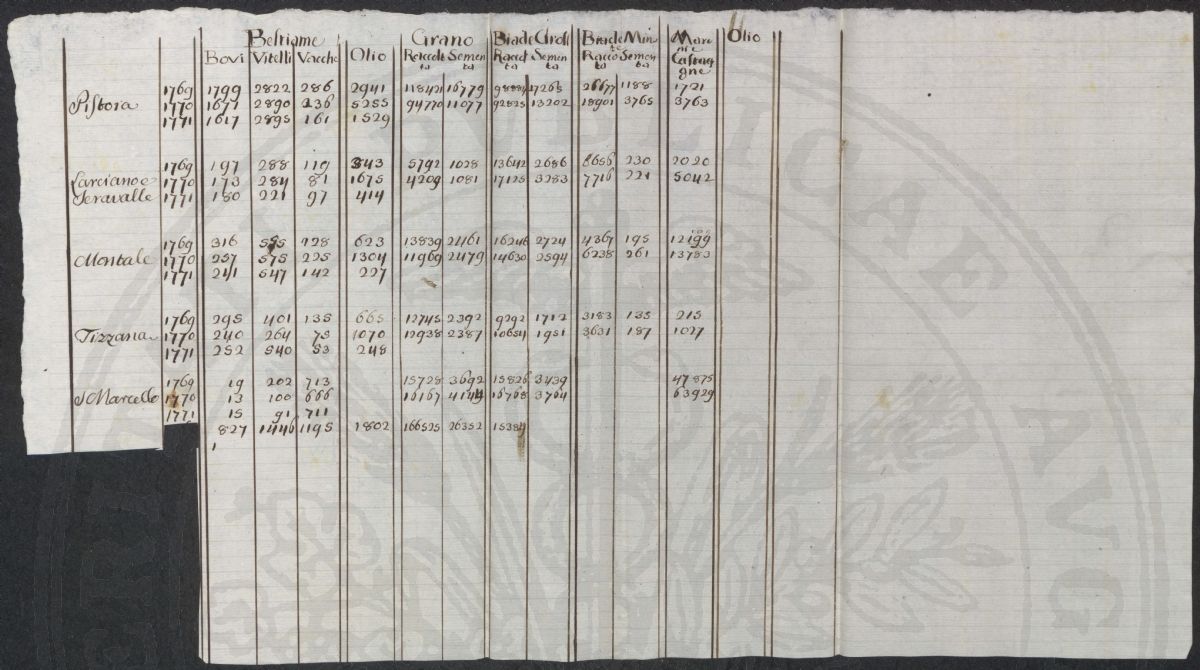 Bestiame Grano Biade Gross Biade Min Mar Olio
Bovi Vitelli Vacche Olio Raccol Semen Raccol Semen Racco Semen Castag
ta ta ta ta ta ta gne
Pistoia 1769 1799 2822 286 2941 118421 16779 17265 26677 1188 1721
1770 1671 2890 236 5255 94770 11077 92825 13202 18901 3765 3763
1771 1617 2895 161 1529
1769 197 288 119 343 5792 1028 13642 2686 8656 230 2020
Larciano e 1770 173 284 81 1675 4209 1081 17125 3283 7716 221 5042
Seravalle 1771 180 221 97 414
1769 316 128 623 13839 2461 16246 2724 4367 195
Montale 1770 257 575 225 1304 11969 2479 14630 2594 6238 261 13783
1771 241 547 142 227
1769 295 401 135 665 12745 2392 9292 1712 3183 135 215
Tizzana 1770 240 264 75 1070 12938 2387 10654 1951 3631 187 1027
1771 252 540 53 248
1769 19 202 713 15728 3692 15826 3439 47875
S Marcello 1770 13 100 666 16167 4144 16768 3764 63929
1771 15 91 711
827 1446 1195 1802 166525 26352 15384
1
PUBLICAE
AVG